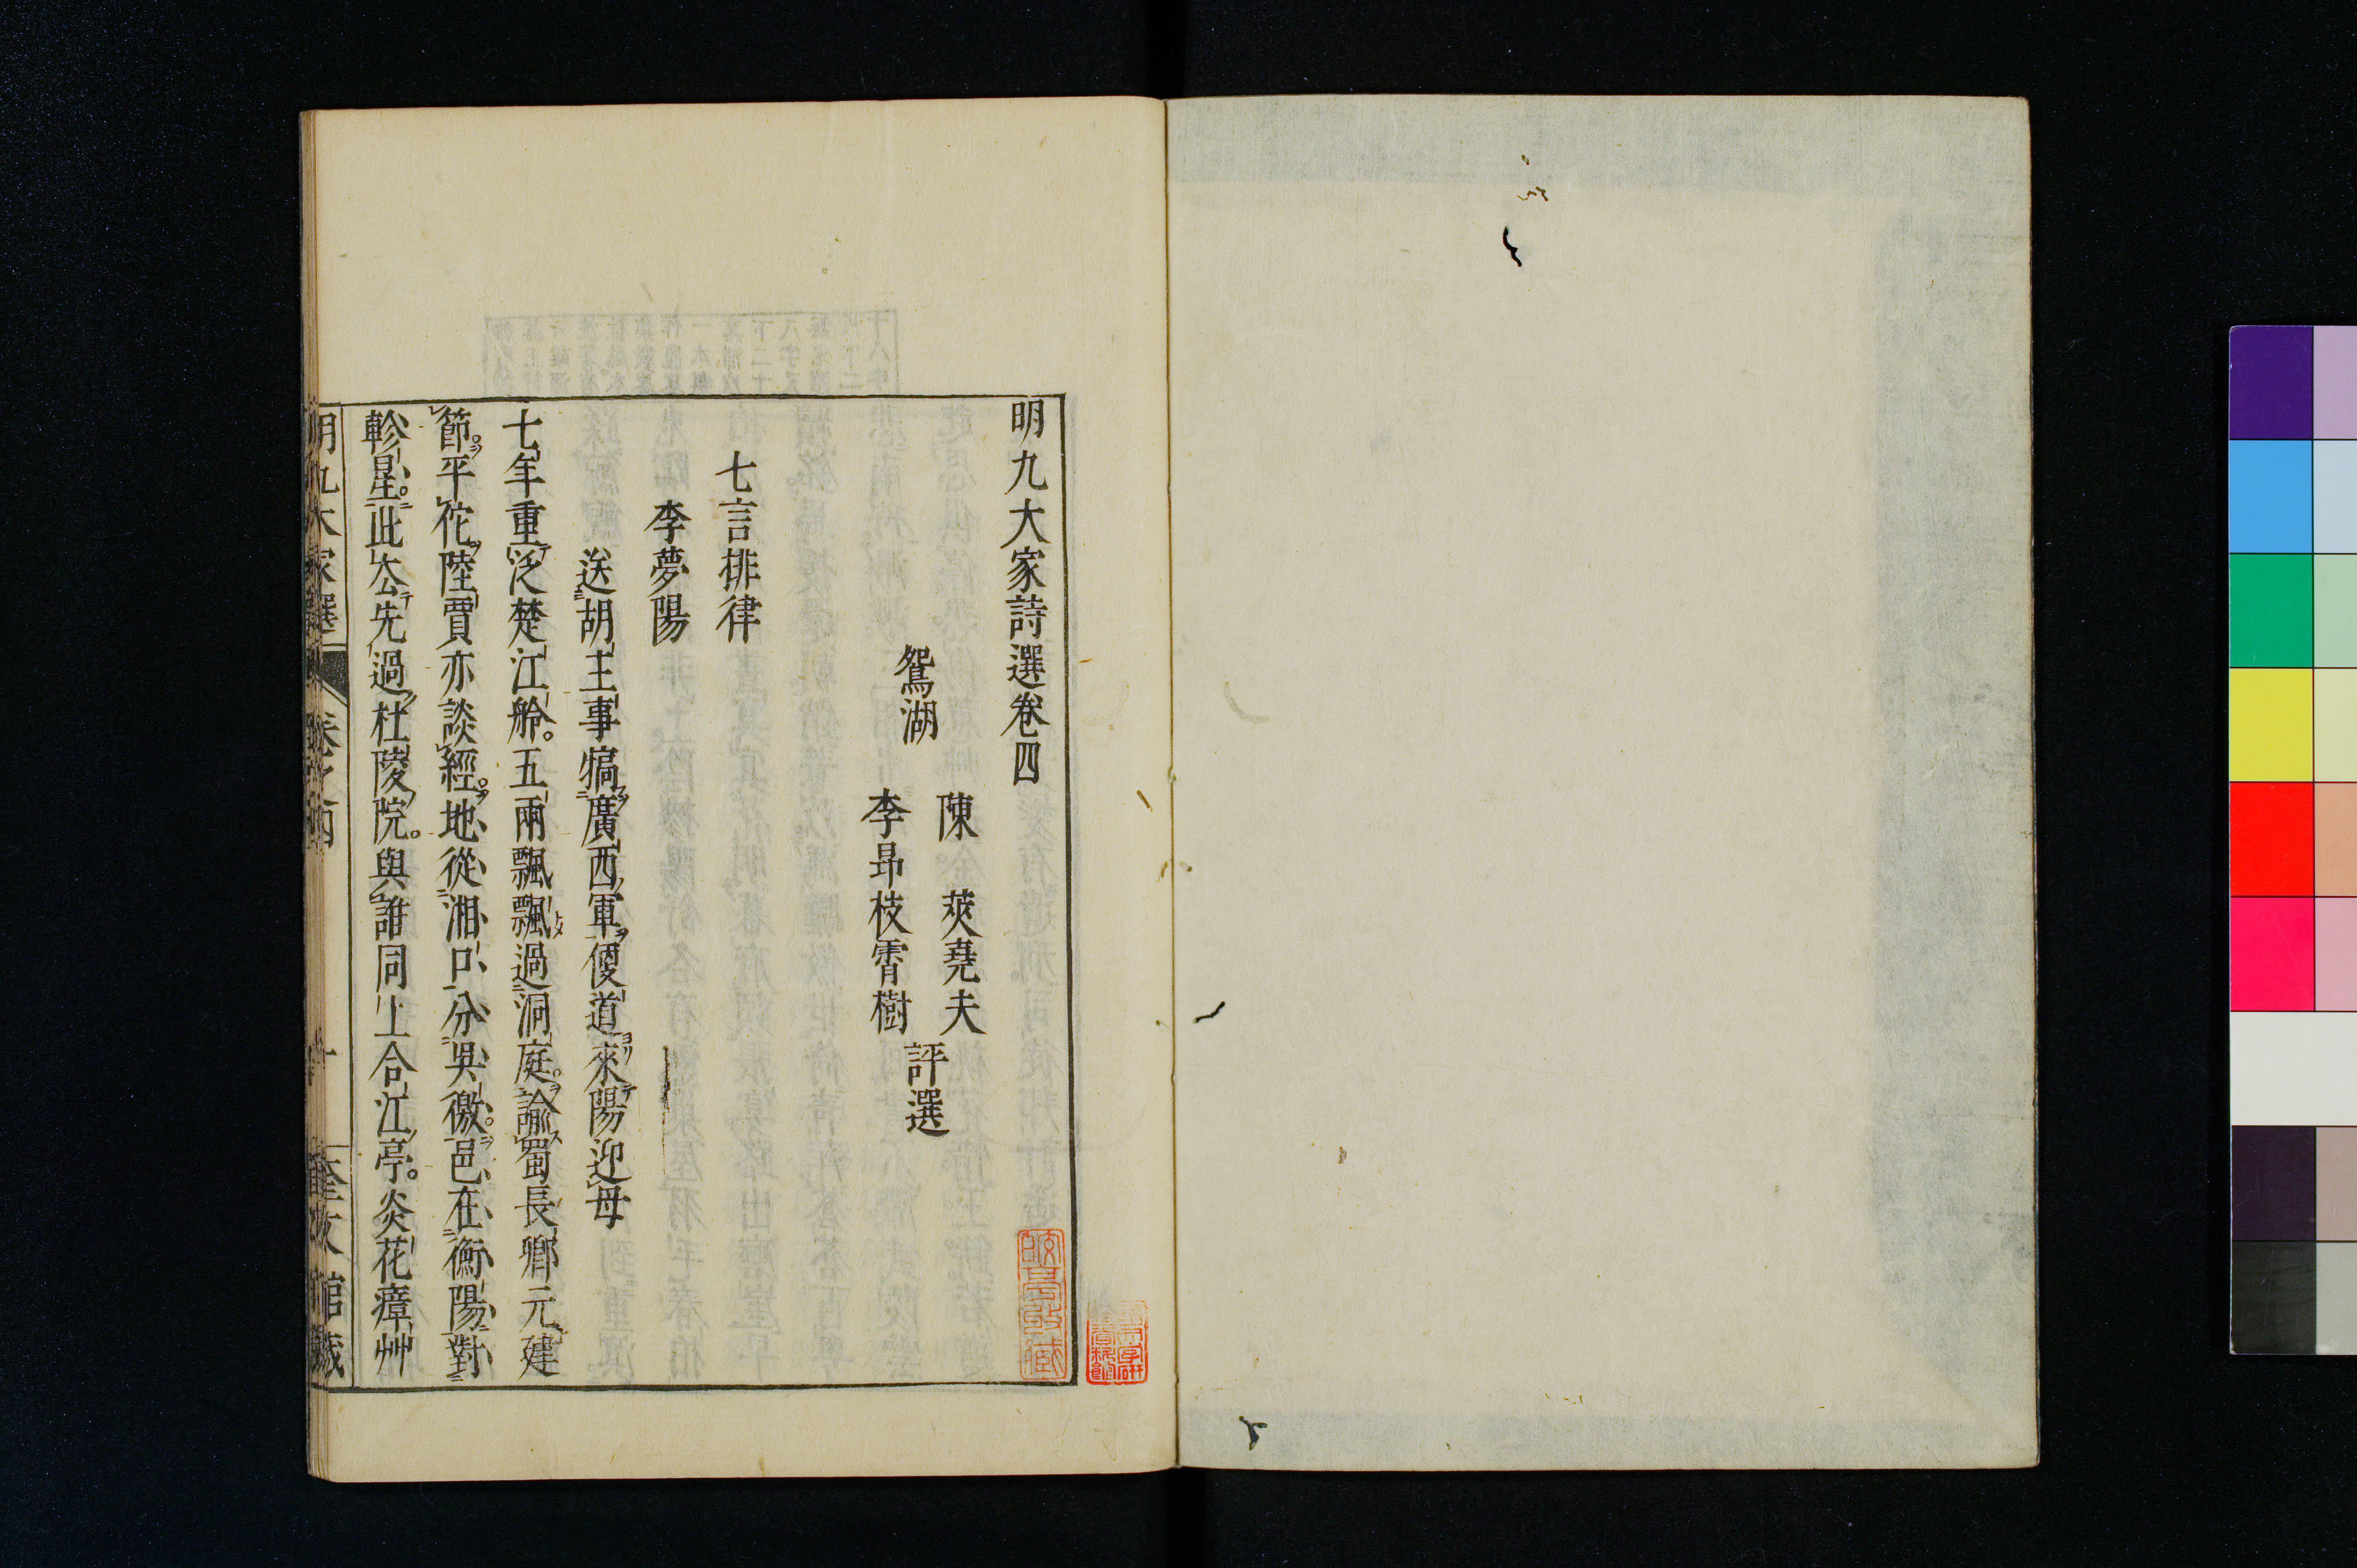 明九大家詩選卷四
陳 莢堯夫
鴛湖 評選
李昂枝霄樹
七言排律
李夢陽
送胡主事犒廣西軍便道來陽迎母
七年重泛楚江舲。五兩飄飄過洞庭。諭蜀長卿元建
節。平佗陸賈亦談經。地從湘口分吳徼。邑在衡陽對
軫星。此公先過杜陵院。與誰同上合江亭。炎花瘴艸
明九大家選 卷之四 奎文館藏